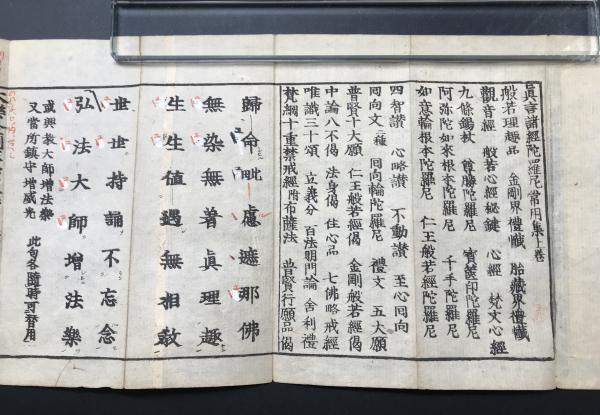 眞言諸經陀羅尼常用集上卷
般若理趣品 金剛界禮懺 胎藏界禮懺
觀音經 般若心經秘鍵 心經 梵文心經
九條錫杖 尊勝陀羅尼 寳篋印陀羅尼
阿弥陀如来根本陀羅尼 千手陀羅尼
如意輪根本陀羅尼 仁王般若經陀羅尼
四智讃 心略讃 不動讃 至心囘向
囘向文二種 囘向輪陀羅尼 禮文 五大願
普賢十大願 仁王般若經偈 金剛般若經偈
中論八不偈 法身偈 住心品 七佛略戒經
唯識三十頌 立義分 百法明門論 舎利禮
梵網十重禁戒經附布薩法 普賢行願品偈
歸命毗盧遮那佛
無染無着眞理趣
生生値遇無相敎
世世持誦不忘念
弘法大師增法樂
或興教大師增法樂
又當所鎮守增威光 此句各隨時可替用